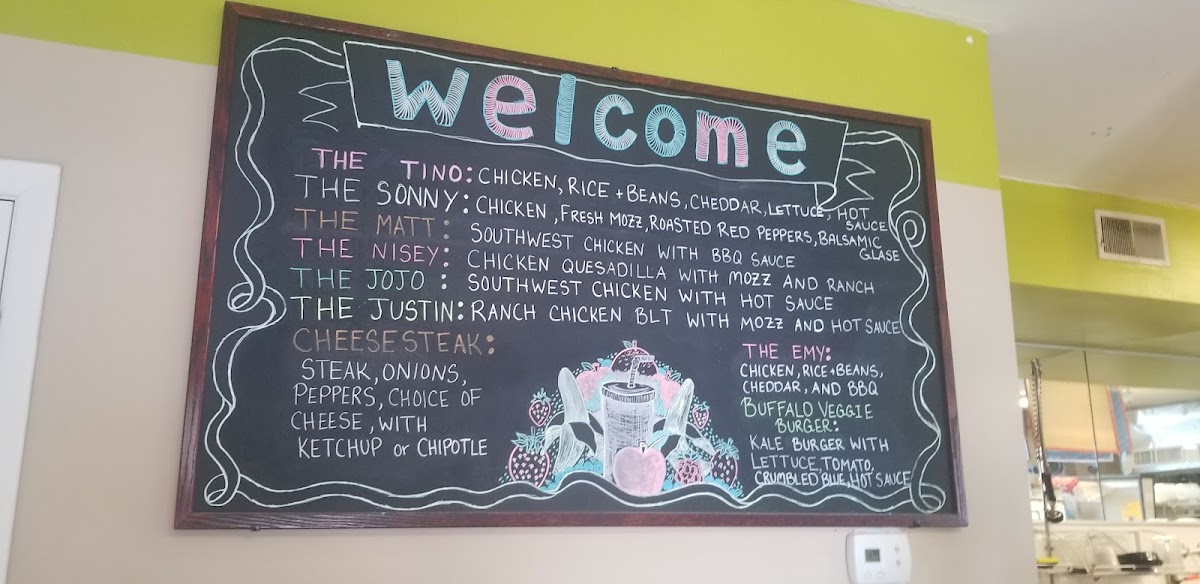 welcome
THE TINO: CHICKEN, RICE + BEANS, CHEDDAR, LETTUCE, HOT SAUCE
THE SONNY: CHICKEN, FRESH MOZZ, ROASTED RED PEPPERS, BALSAMIC GLASE
THE MATT: SOUTHWEST CHICKEN WITH BBQ SAUCE
THE NISEY: CHICKEN QUESADILLA WITH MOZZ AND RANCH
THE JOJO: SOUTHWEST CHICKEN WITH HOT SAUCE
THE JUSTIN: RANCH CHICKEN BLT WITH MOZZ AND HOT SAUCE
CHEESESTEAK:
STEAK, ONIONS,
PEPPERS, CHOICE OF
CHEESE, WITH
KETCHUP or CHIPOTLE
THE EMY:
CHICKEN, RICE + BEANS,
CHEDDAR, AND BBQ
BUFFALO VEGGIE
BURGER:
KALE BURGER WITH
LETTUCE, TOMATO,
CRUMBLED BLUE, HOT SAUCE